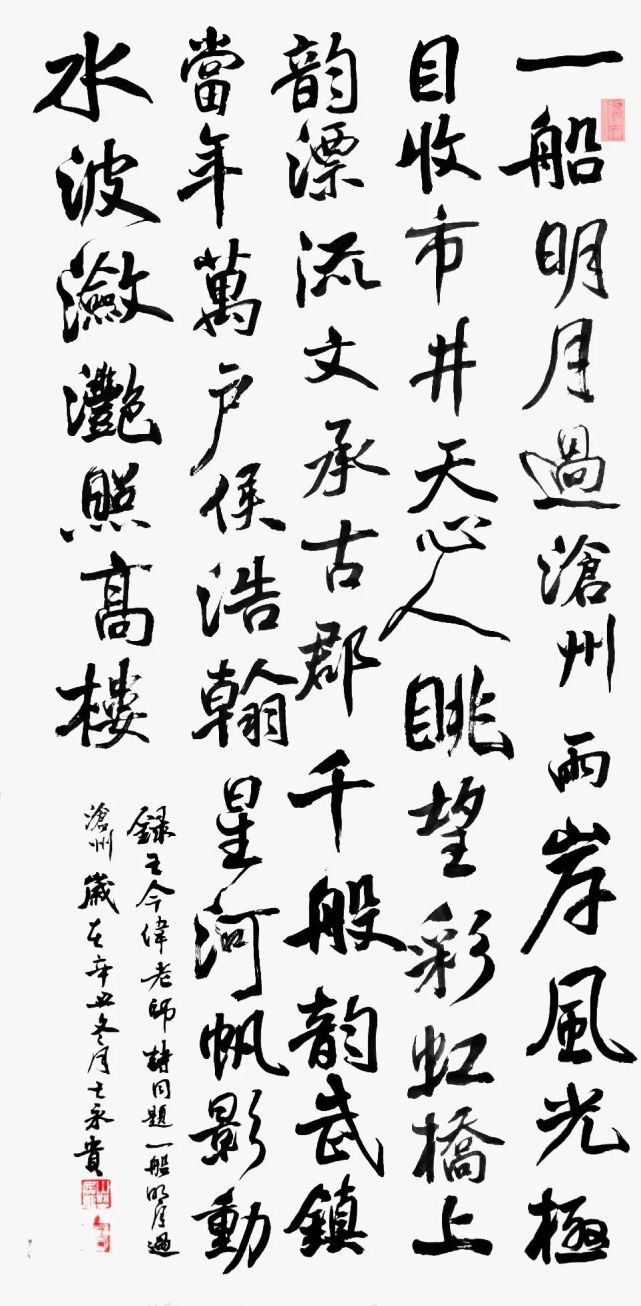 一船明月過滄州兩岸風光極
目收市井天心人眺望彩虹橋上
韵漂流文承古郡千般韵武鎮
當年萬户侯浩翰星河帆影動
水波瀲灔照高樓
録王今偉老師詩同題一船明月過
滄州歲在辛丑冬月永貴